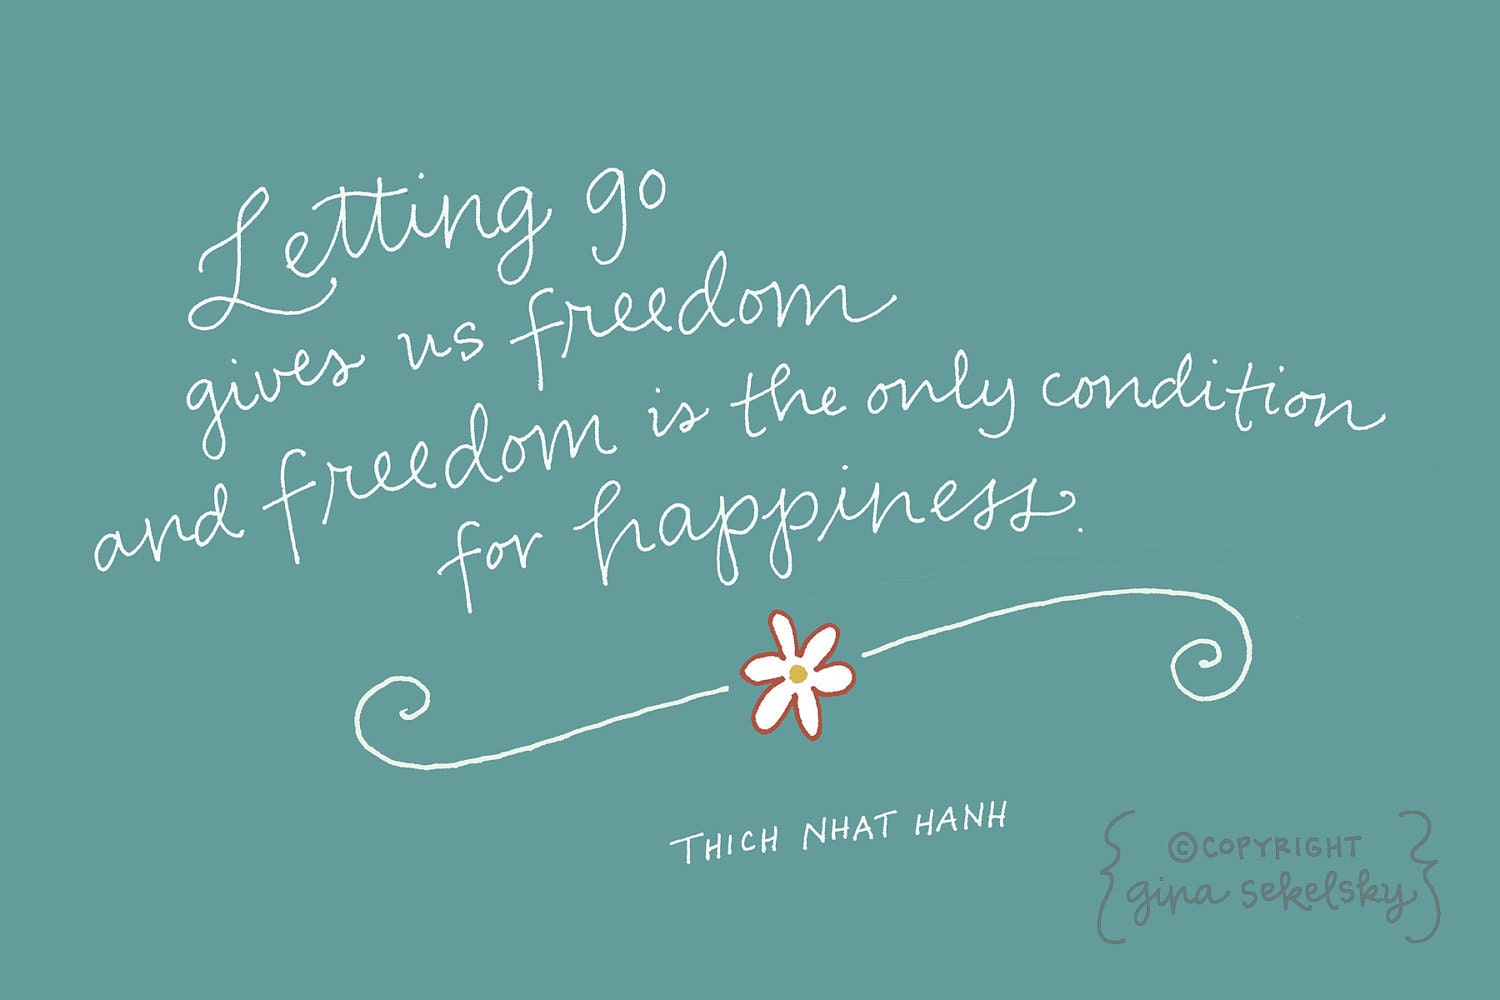 Letting go
gives us freedom
and freedom is the only condition
for happiness.
THICH NHAT HANH
©COPYRIGHT
gina sekelsky